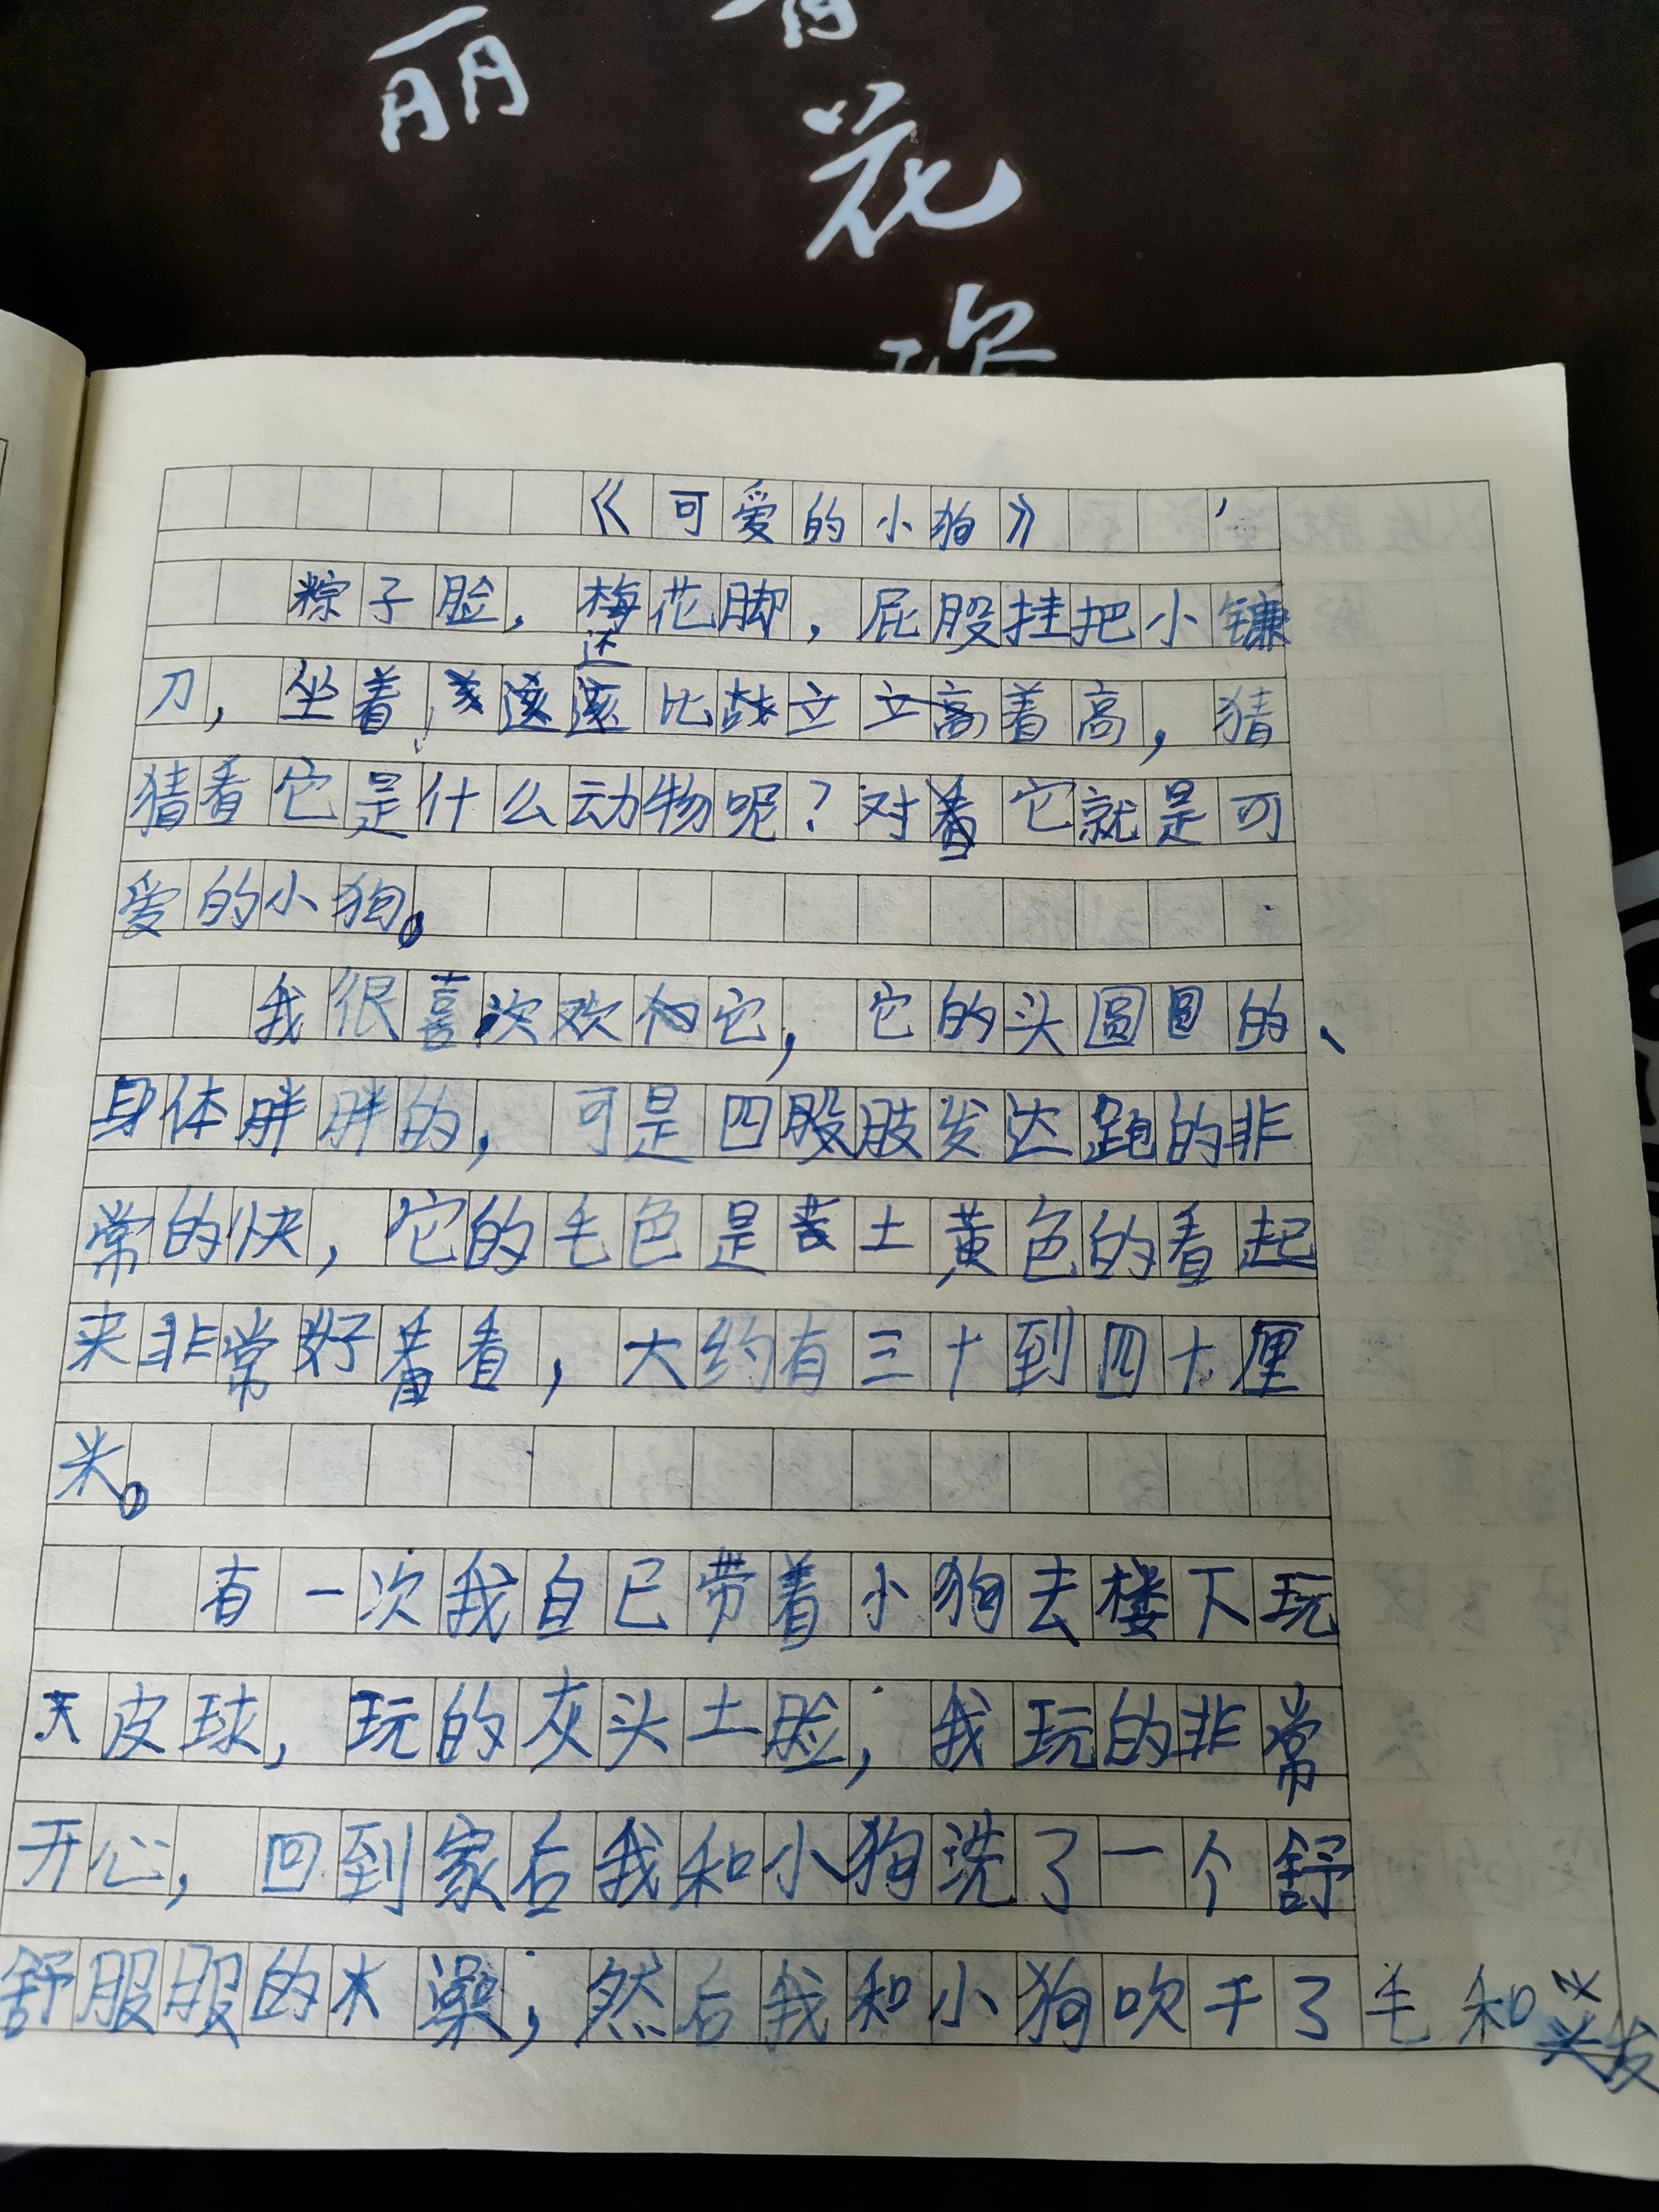 丽
花
《可爱的小狗》
粽子脸，梅花脚，屁股挂把小镰
还
刀，坐着比站立立高着高，猜
猜看它是什么动物呢？对着它就是可
爱的小狗。
我很喜次欢它，它的头圆圆的、
身体胖胖的，可是四股肢发达跑的非
常的快，它的毛色是土黄色的看起
来非常好看看，大约有三十到四十厘
米。
有一次我自已带着小狗去楼下玩
皮球，玩的灰头土脸，我玩的非常
开心，回到家后我和小狗洗了一个舒
舒服服的澡，然后我和小狗吹干了毛和
头发